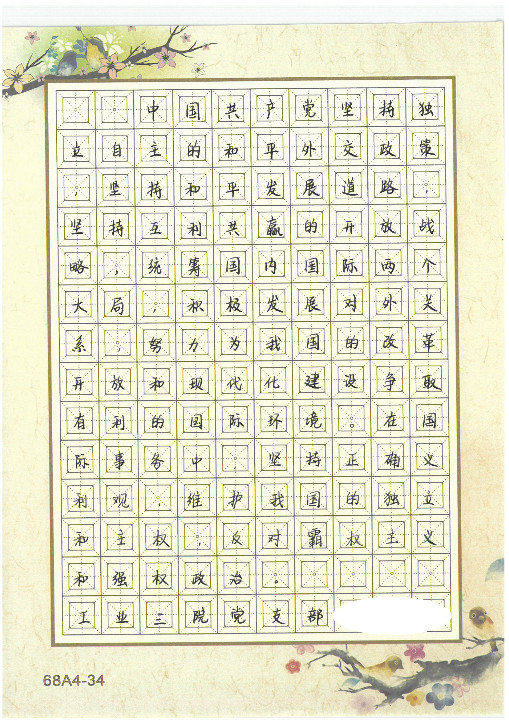 中国共产党坚持独
立自主的和平外交政策
，坚持和平发展道路，
坚持互利共赢的开放战
略，统筹国内国际两个
大局，积极发展对外关
系，努力为我国的改革
开放和现代化建设争取
有利的国际环境。在国
际事务中，坚持正确义
利观，维护我国的独立
和主权，反对霸权主义
和强权政治。
工业三院党支部
68A4-34